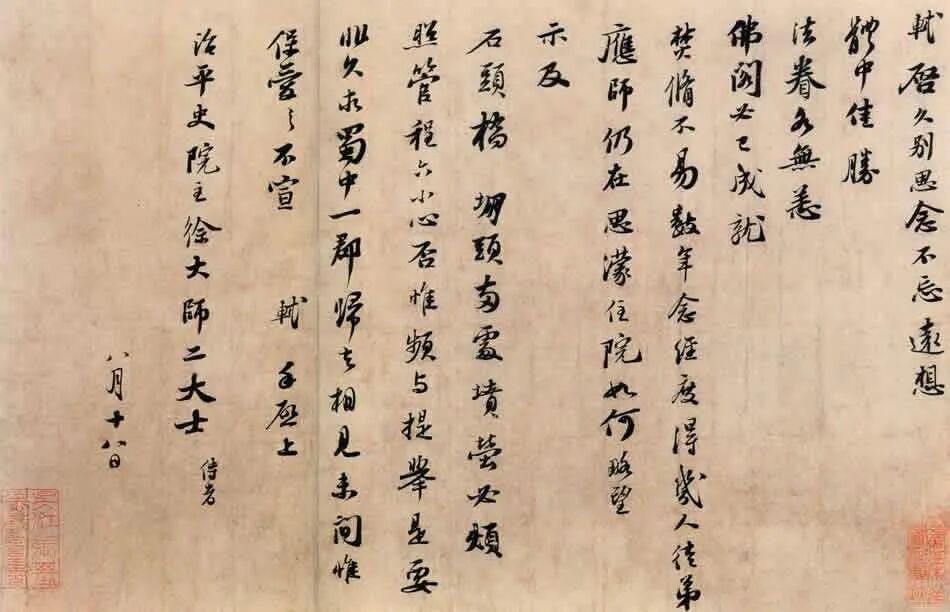 軾啓久别思念不忘遠想
體中佳勝
法眷各無恙
佛閣必已成就
焚脩不易數年念經度得幾人徒弟
應師仍在思濛住院如何略望
示及
石頭橋堋頭兩處墳塋必煩
照管程六小心否惟頻与提舉是要
非久求蜀中一郡歸去相見未間惟
保愛之不宣 軾手啟上
治平史院主徐大師二大士 侍者
八月十八日